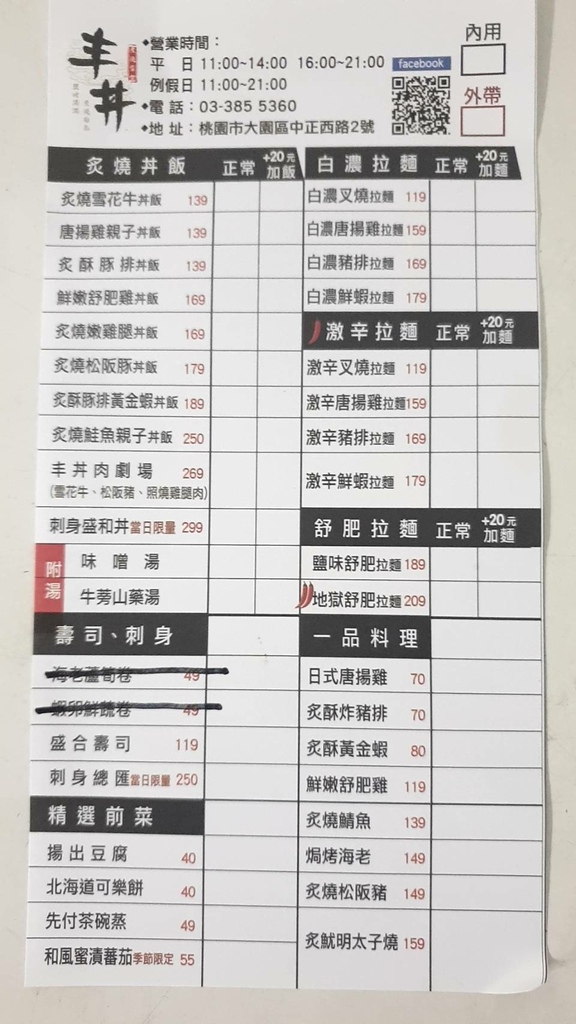 丰丼
◆營業時間：
平 日 11:00~14:00 16:00~21:00
例假日 11:00~21:00
◆電話：03-385 5360
◆地址：桃園市大園區中正西路2號
facebook
內用
外帶
炙燒丼飯 正常 +20元加飯
炙燒雪花牛丼飯 139
唐揚雞親子丼飯 139
炙酥豚排丼飯 139
鮮嫩舒肥雞丼飯 169
炙燒嫩雞腿丼飯 169
炙燒松阪豚丼飯 179
炙酥豚排黃金蝦丼飯 189
炙燒鮭魚親子丼飯 250
丰丼肉劇場 269
(雪花牛、松阪豬、照燒雞腿肉)
刺身盛和丼當日限量 299
附湯
味噌湯
牛蒡山藥湯
壽司、刺身
海老蘆筍卷 49
蝦卵鮮蔬卷 49
盛合壽司 119
刺身總匯當日限量 250
精選前菜
揚出豆腐 40
北海道可樂餅 40
先付茶碗蒸 49
和風蜜漬蕃茄季節限定 55
白濃拉麵 正常 +20元加麵
白濃叉燒拉麵 119
白濃唐揚雞拉麵 159
白濃豬排拉麵 169
白濃鮮蝦拉麵 179
激辛拉麵 正常 +20元加麵
激辛叉燒拉麵 119
激辛唐揚雞拉麵 159
激辛豬排拉麵 169
激辛鮮蝦拉麵 179
舒肥拉麵 正常 +20元加麵
鹽味舒肥拉麵 189
地獄舒肥拉麵 209
一品料理
日式唐揚雞 70
炙酥炸豬排 70
炙酥黃金蝦 80
鮮嫩舒肥雞 119
炙燒鯖魚 139
焗烤海老 149
炙燒松阪豬 149
炙魷明太子燒 159